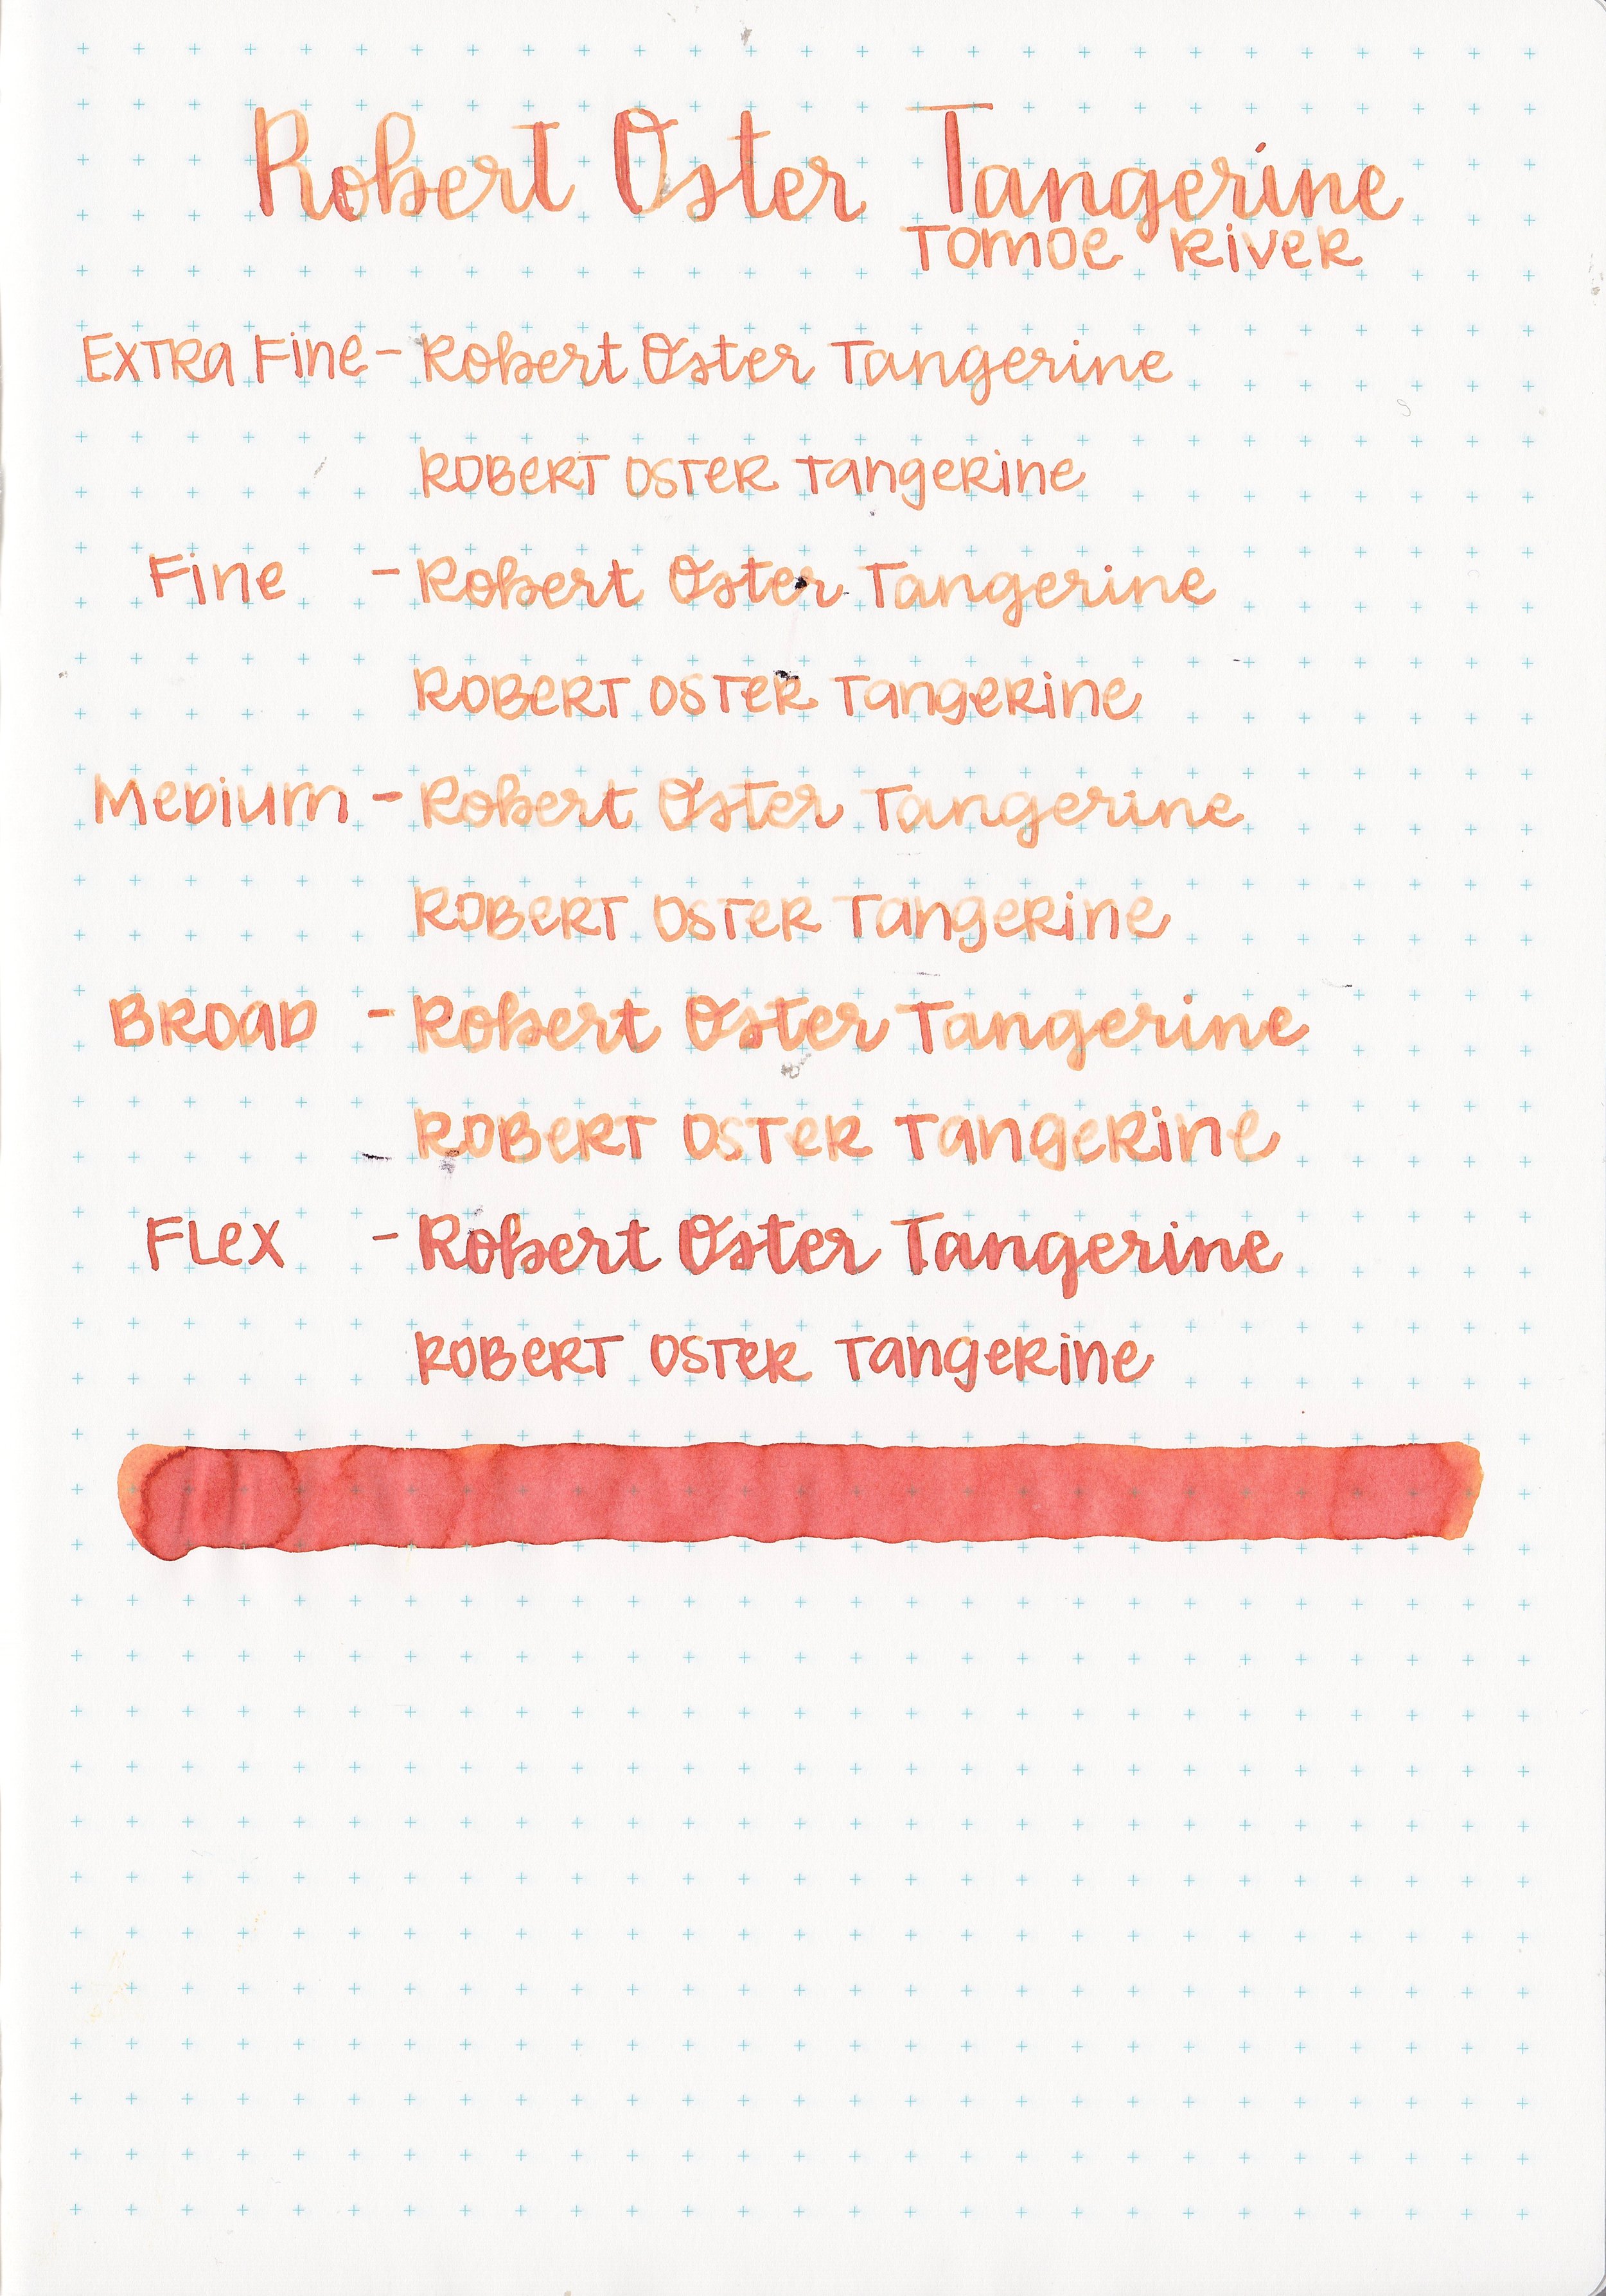 Robert Oster Tangerine
Tomoe River
Extra Fine - Robert Oster Tangerine
Robert Oster Tangerine
Fine - Robert Oster Tangerine
Robert Oster Tangerine
Medium - Robert Oster Tangerine
Robert Oster Tangerine
Broad - Robert Oster Tangerine
Robert Oster Tangerine
Flex - Robert Oster Tangerine
Robert Oster Tangerine